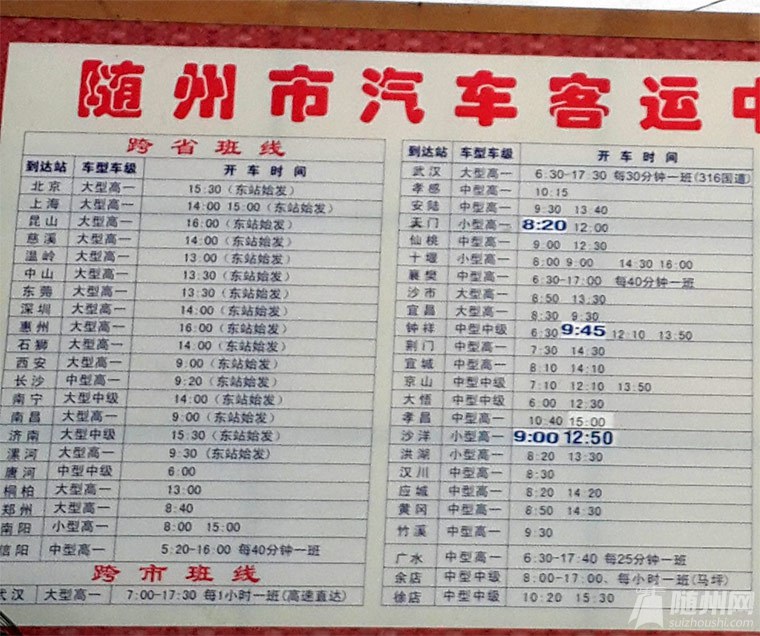 随州市汽车客运中
跨省班线
到达站 车型车级 开车时间
北京 大型高一 15:30(东站始发)
上海 大型高一 14:00 15:00(东站始发)
昆山 大型高一 16:00(东站始发)
慈溪 大型高一 14:00(东站始发)
温岭 大型高一 13:00(东站始发)
中山 大型高一 13:30(东站始发)
东莞 大型高一 13:30(东站始发)
深圳 大型高一 14:00(东站始发)
惠州 大型高一 16:00(东站始发)
石狮 大型高一 14:00(东站始发)
西安 大型高一 9:00(东站始发)
长沙 中型高一 9:20(东站始发)
南宁 大型中级 14:00(东站始发)
南昌 大型高一 9:00(东站始发)
济南 大型中级 15:30(东站始发)
漯河 大型高一 9:30(东站始发)
唐河 中型中级 6:00
桐柏 大型高一 13:00
郑州 大型高一 8:40
南阳 小型高一 8:00 15:00
信阳 中型高一 5:20-16:00 每40分钟一班
跨市班线
武汉 大型高一 7:00-17:30 每1小时一班(高速直达)
到达站 车型车级 开车时间
武汉 大型高一 6:30-17:30 每30分钟一班(316国道)
孝感 中型高一 10:15
安陆 中型高一 9:30 13:40
天门 小型高一 8:20 12:00
仙桃 中型高一 9:00 12:30
十堰 小型高一 6:00 9:00 14:30 16:00
襄樊 中型高一 6:30-17:00 每40分钟一班
沙市 大型高一 8:50 13:30
宜昌 大型高一 8:30 9:30
钟祥 中型中级 6:30 9:45 12:10 13:50
荆门 中型高一 7:30 14:30
宜城 中型高一 8:10 14:10
京山 中型中级 7:10 12:10 13:50
大悟 中型中级 6:00 12:30
孝昌 中型高一 10:40 15:00
沙洋 小型高一 9:00 12:50
洪湖 小型高一 8:20 13:30
汉川 中型高一 8:30
应城 中型高一 8:20 14:20
黄冈 中型高一 8:50 14:30
竹溪 中型高一 9:30
广水 中型高一 6:30-17:40 每25分钟一班
余店 中型中级 8:00-17:00、每小时一班(马坪)
徐店 中型中级 10:20 15:30
随州网
suizhoushi.com